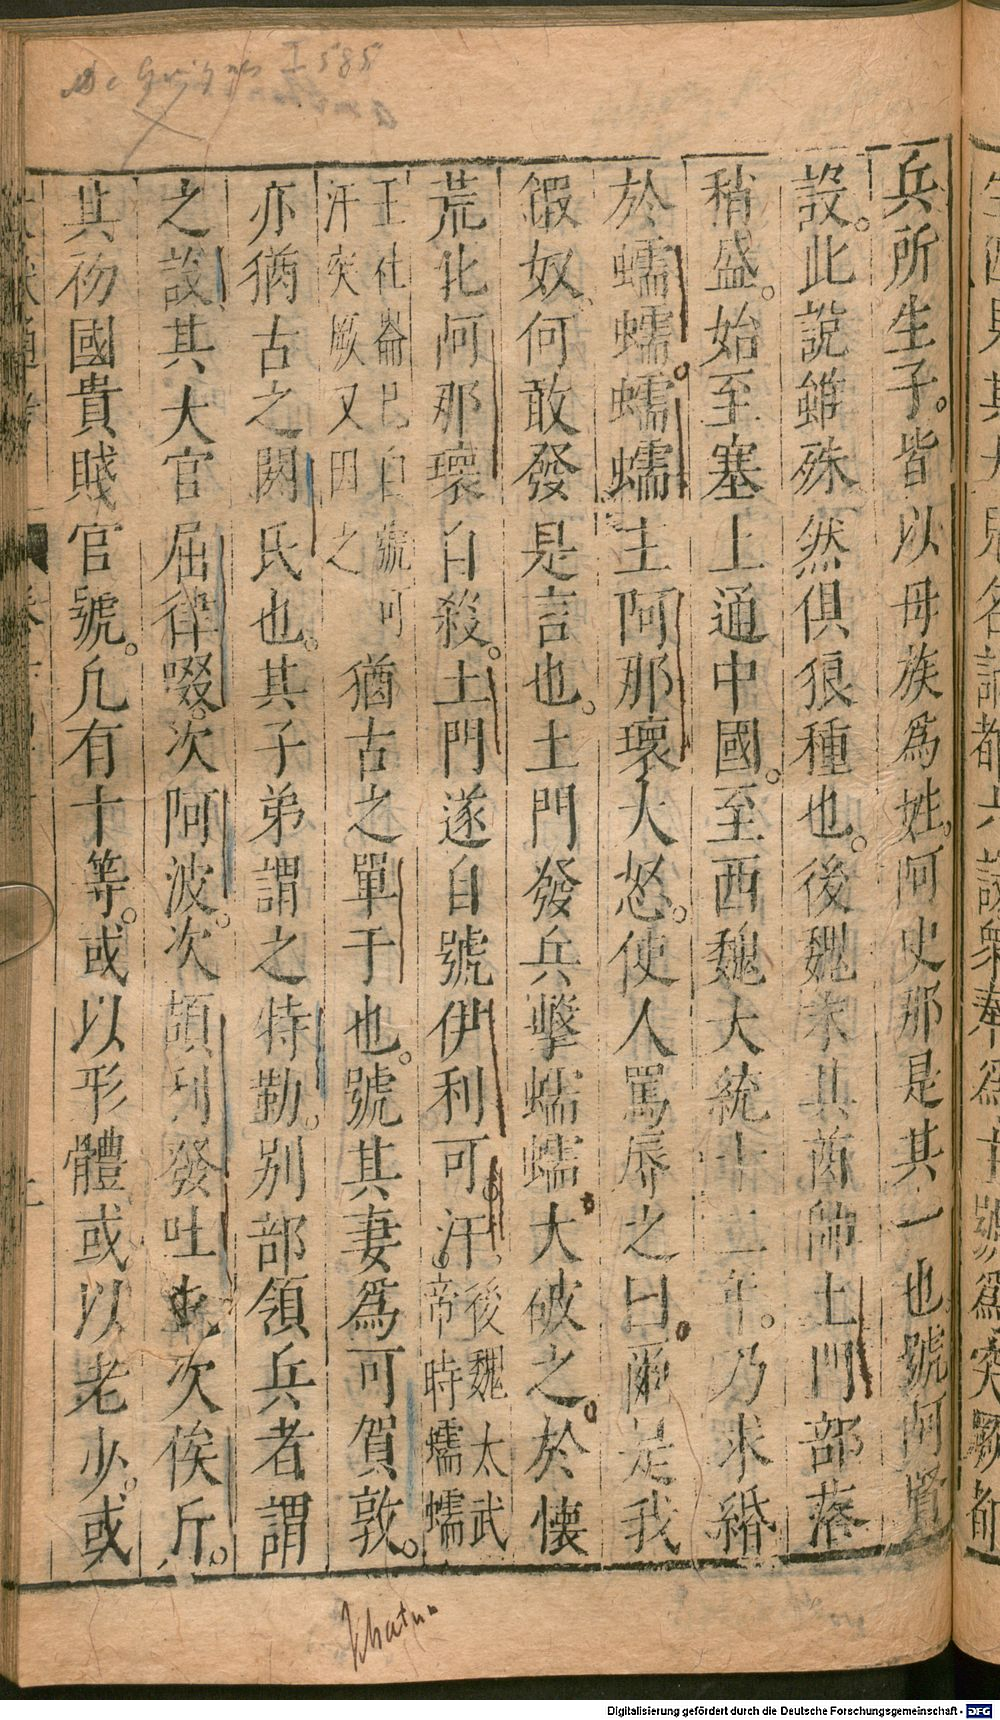 兵所生子。皆以母族爲姓。阿史那是其一也。號阿賢
設。此說雖殊然俱狼種也。後魏末其酋帥土門部落
稍盛。始至塞上通中國。至西魏大統十二年。乃求婚
於蠕蠕。蠕蠕主阿那瓌大怒。使人罵辱之曰。爾是我
鍜奴、何敢發是言也。土門發兵擊蠕蠕大破之。於懷
荒北阿那瓌自殺。土門遂自號伊利可汗。後魏太武帝時蠕蠕
王社崙已自號可汗突厥又因之 猶古之單于也。號其妻爲可賀敦。
亦猶古之閼氏也。其子弟謂之特勒。別部領兵者謂
之設其大官屈律啜。次阿波。次頡利發吐屯次俟斤。
其初國貴賤官號。凢有十等。或以形體或以老少。或
De Guignes I 585
khatun
Digitalisierung gefördert durch die Deutsche Forschungsgemeinschaft - DFG